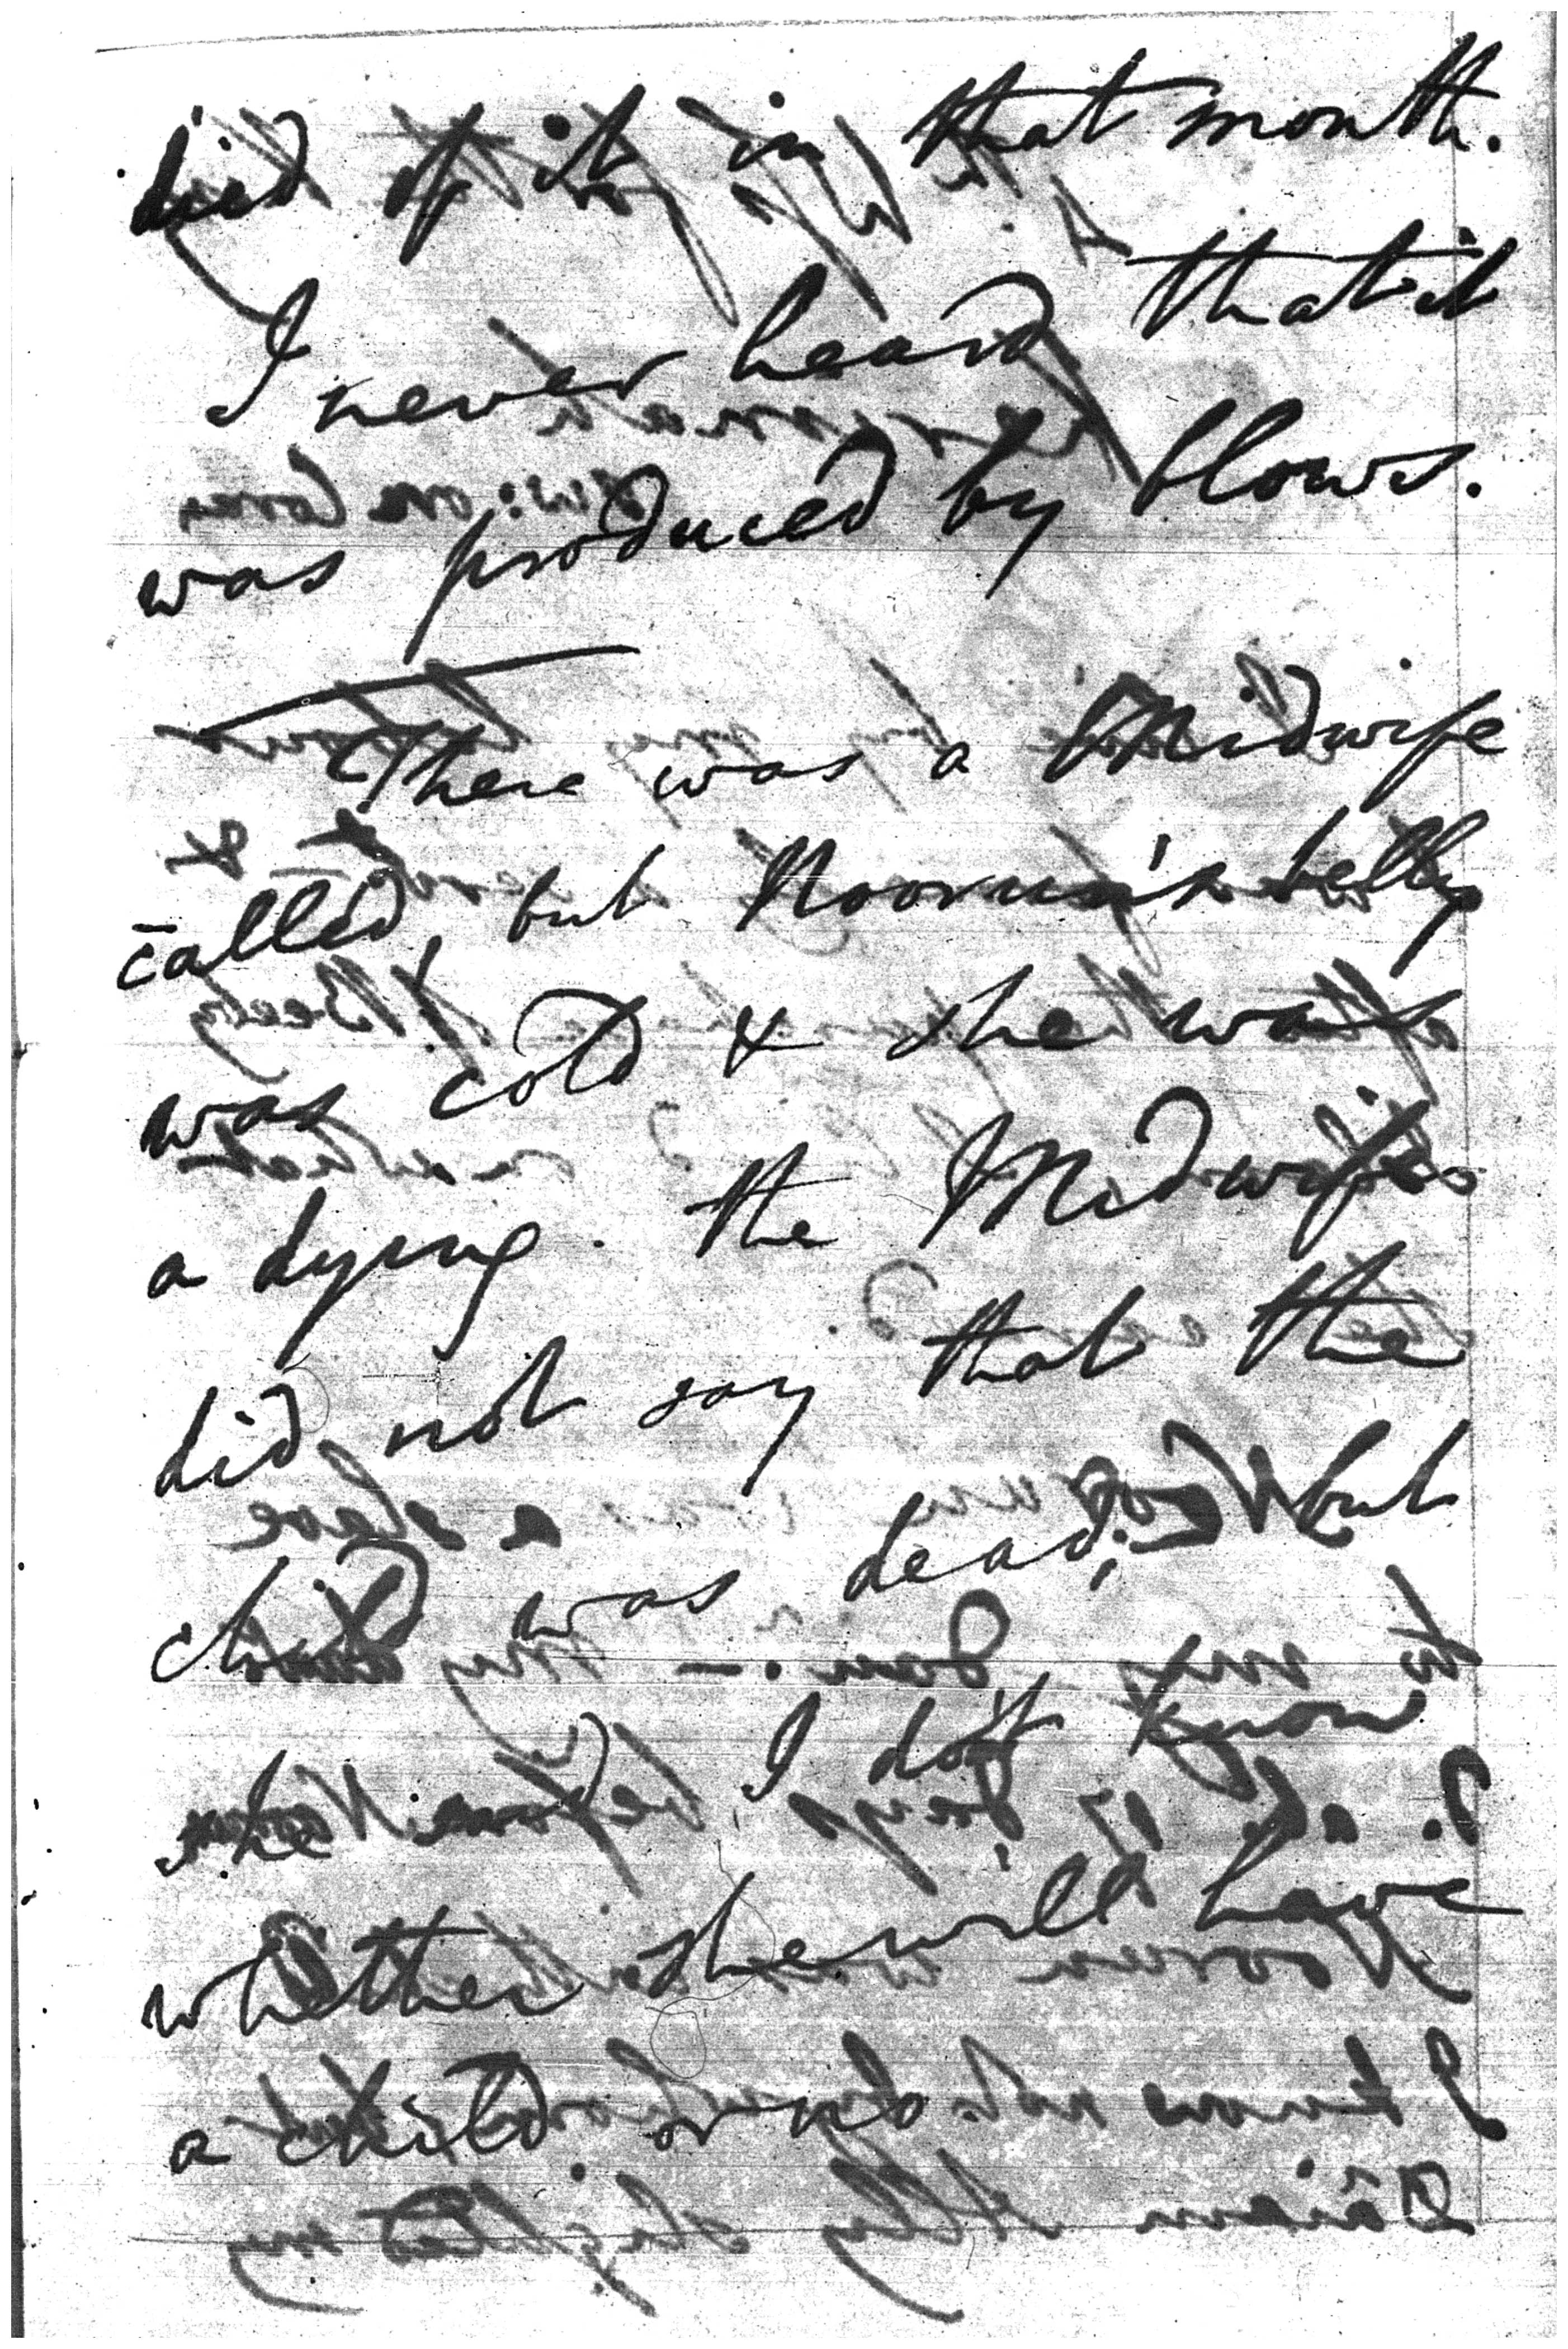 died of it in that month.
I never heard that it
was produced by blows.
There was a Midwife
called, but Noorun's belly
was cold & she was
a dying. the Midwife
did not say that the
child was dead; but
I don't know
whether she will have
a child or no.